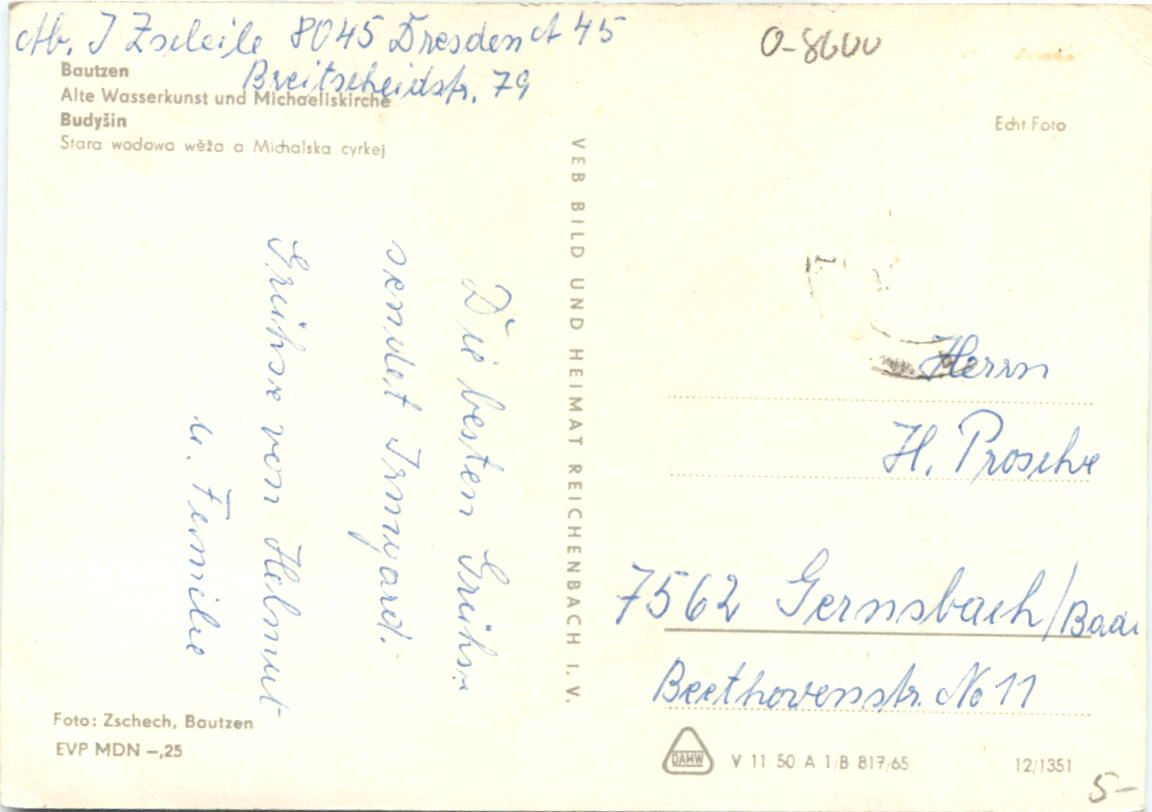 Ab. I Zscheile 8045 Dresden A 45
Breitscheidstr. 79
Bautzen
Alte Wasserkunst und Michaeliskirche
Budyšin
Stara wodowa wěža a Michalska cyrkej
Die besten Grühse
sendet Irmgard.
Grühse von Helmut
u. Familie
Foto: Zschech, Bautzen
EVP MDN –,25
VEB BILD UND HEIMAT REICHENBACH I. V.
O-8600
Echt Foto
Herrn
H. Prosche
7562 Gernsbach/Baden
Beethovenstr. No 11
DAMW
V 11 50 A 1/B 817/65
12/1351
5–